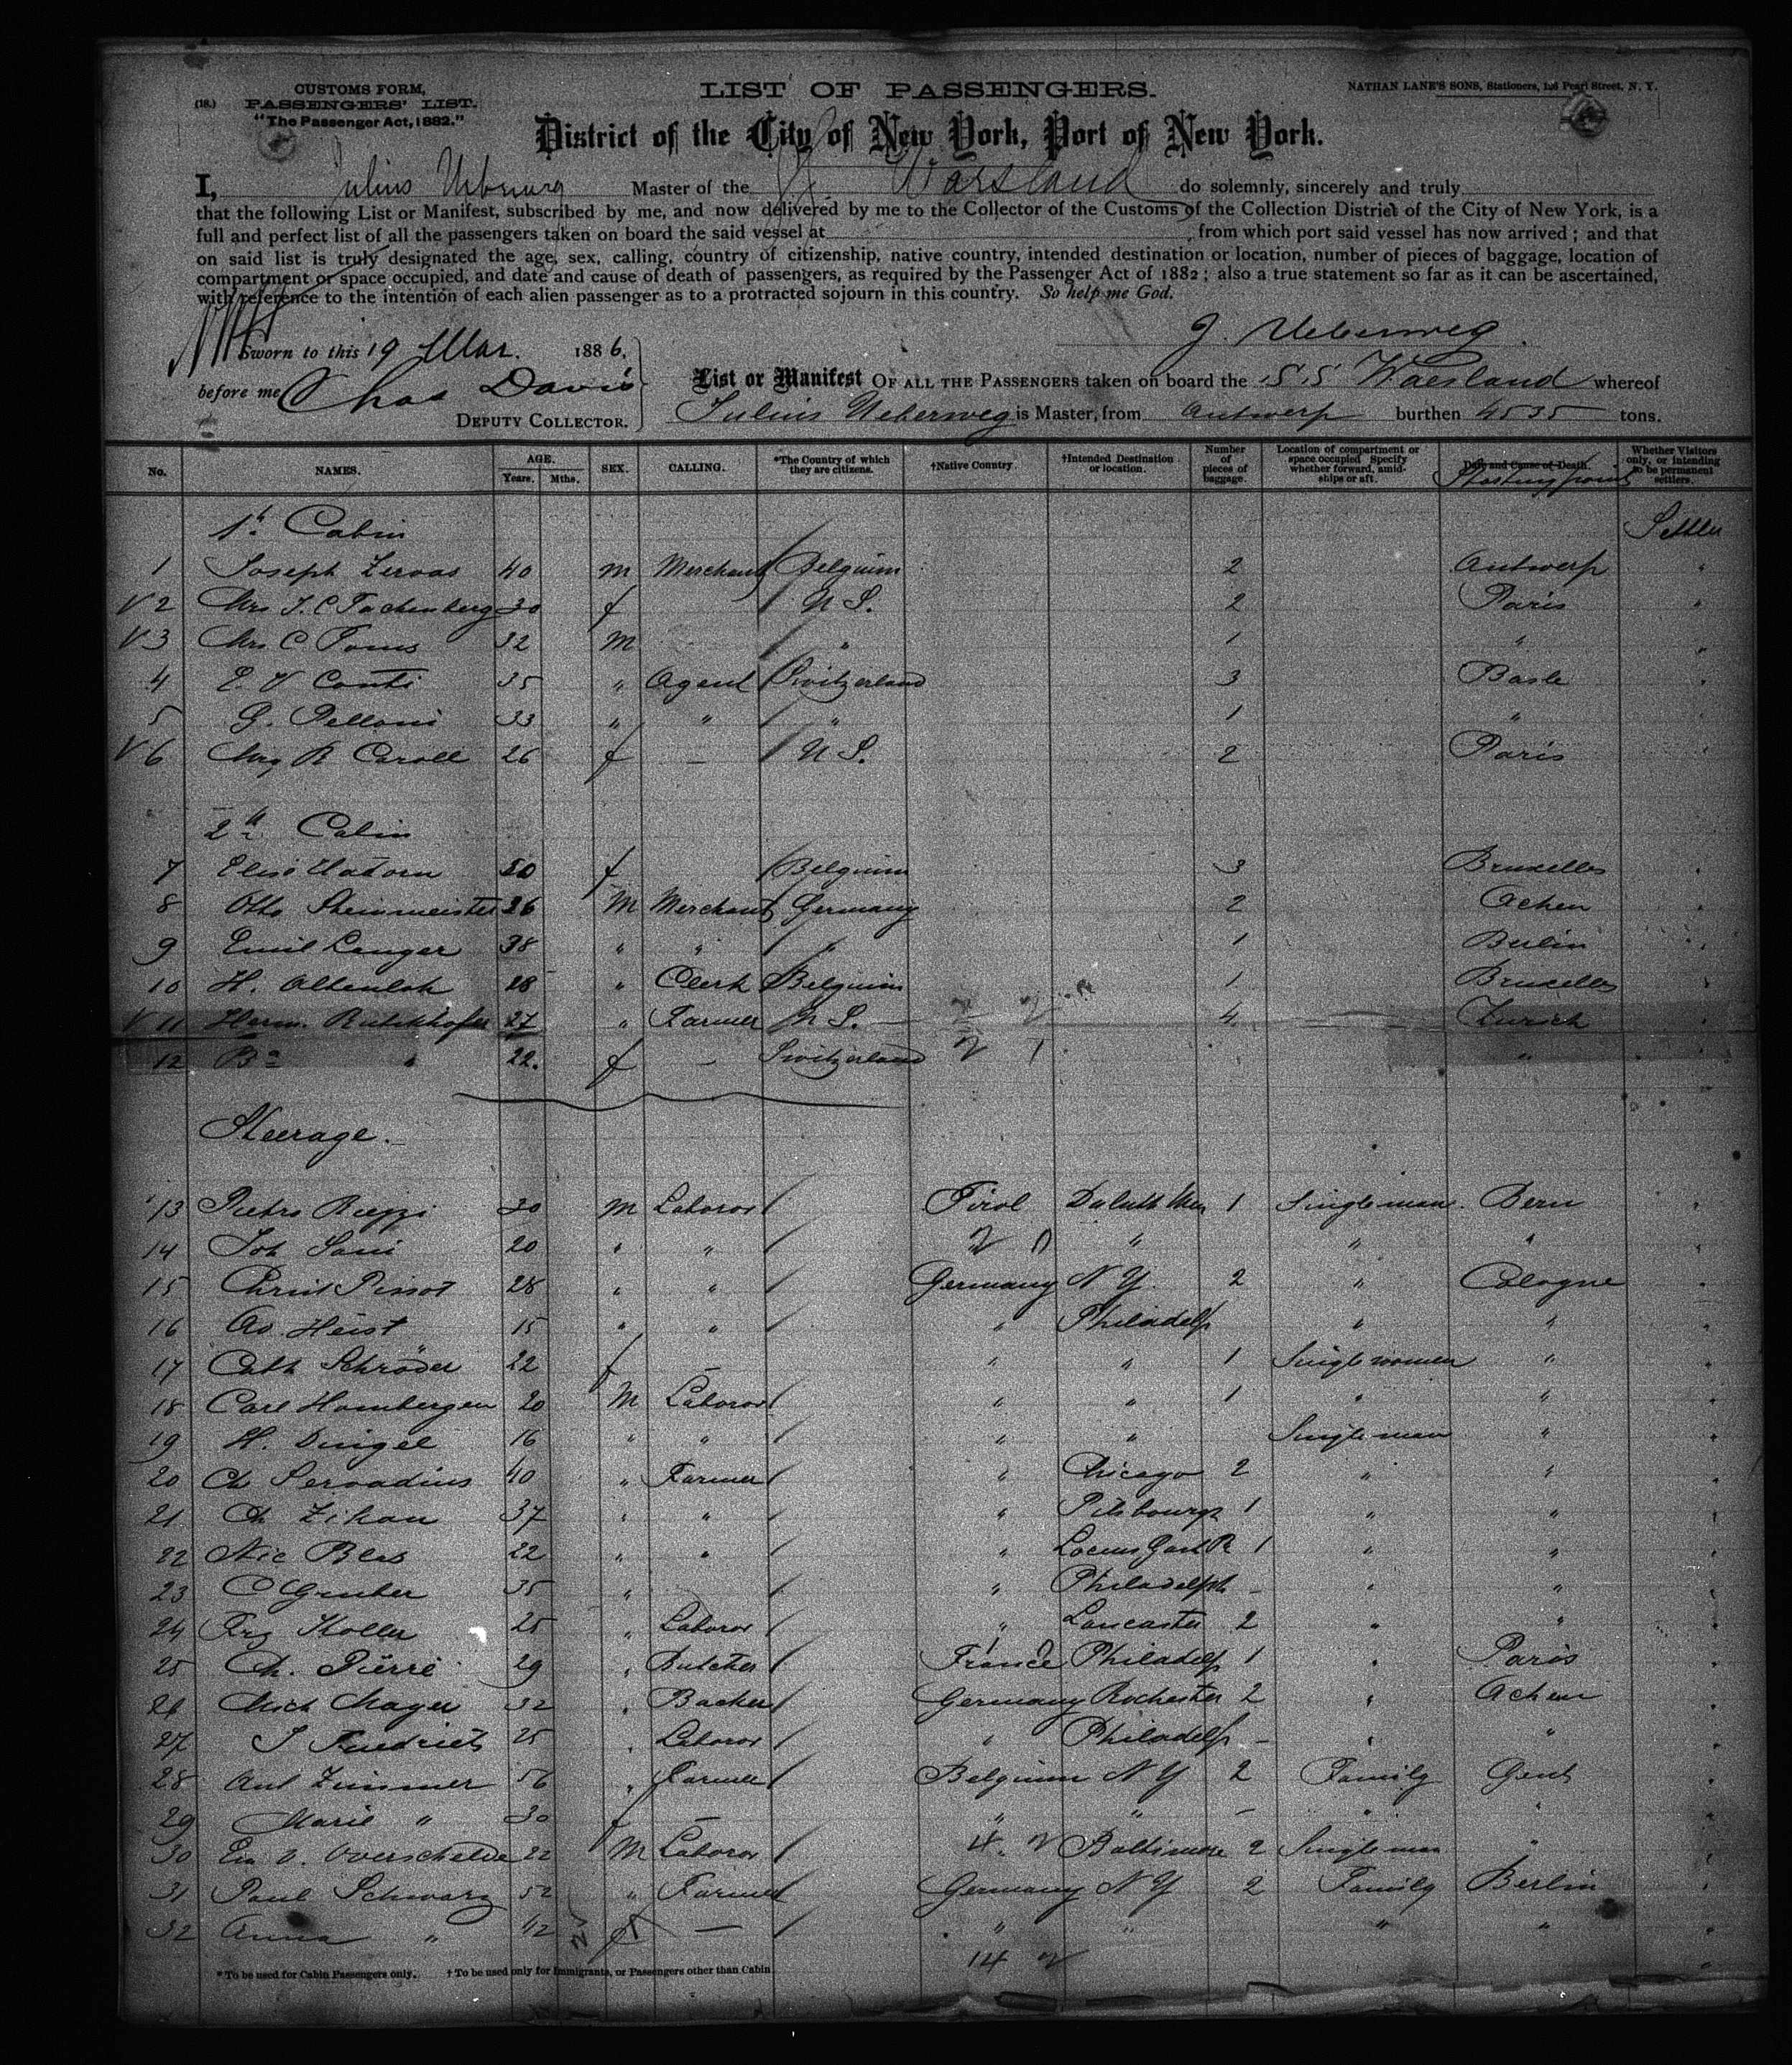 CUSTOMS FORM,
(18.) PASSENGERS' LIST.
"The Passenger Act, 1882."
LIST OF PASSENGERS.
NATHAN LANE'S SONS, Stationers, 108 Pearl Street, N. Y.
District of the City of New York, Port of New York.
I, Julius Master of the Waesland do solemnly, sincerely and truly
that the following List or Manifest, subscribed by me, and now delivered by me to the Collector of the Customs of the Collection District of the City of New York, is a
full and perfect list of all the passengers taken on board the said vessel at from which port said vessel has now arrived; and that
on said list is truly designated the age, sex, calling, country of citizenship, native country, intended destination or location, number of pieces of baggage, location of
compartment or space occupied, and date and cause of death of passengers, as required by the Passenger Act of 1882; also a true statement so far as it can be ascertained,
with reference to the intention of each alien passenger as to a protracted sojourn in this country. So help me God.
J. Ueberweg
Sworn to this 19 Mar. 1886,
before me Chas Davis
DEPUTY COLLECTOR.
List or Manifest OF ALL THE PASSENGERS taken on board the S.S. Waesland whereof
Julius Ueberweg is Master, from Antwerp burthen 4535 tons.
No. NAMES. AGE. Years. Mths. SEX. CALLING. *The Country of which they are citizens. †Native Country. †Intended Destination or location. Number of pieces of baggage. Location of compartment or space occupied. Specify whether forward, amidships or aft. Date and Cause of Death. Starting point Whether Visitors only, or intending to be permanent settlers.
1st Cabin Settler
1 Joseph Zervas 40 m Merchant Belgium 2 Antwerp "
V 2 Mrs J. C Tachenberg 30 f U S. 2 Paris "
V 3 Mrs C Toms 32 M " 1 " "
4 E. V Conti 35 " Agent Switzerland 3 Basle "
5 G. Pelloni 33 " " " 1 "
V 6 Mrs R Caroll 26 f — U S. 2 Paris "
2d Cabin
7 Elise Hadorn 20 f Belgium 3 Bruxelles "
8 Otto Steinmeister 26 M Merchant Germany 2 Achen "
9 Emil Langer 38 " " " 1 Berlin "
10 H. Altenloh 28 " Clerk Belgium 1 Bruxelles "
V 11 Herm. 27 " Farmer U S. 4 Zurich "
12 " 22. f — Switzerland " "
Steerage.
13 Pietro Riezzi 30 M Laboror Tirol Duluth Min 1 Single man. Bern "
14 Joh Sani 20 " " " " " "
15 Christ Pissot 28 " " Germany N Y. 2 " Cologne "
16 Av. Heist 15 " " " Philadelp " " "
17 Cath Schröder 22 f — " " 1 Single women " "
18 Carl Hombergen 20 M Laboror " " 1 " " "
19 H. Dingel 16 " " " " Single man " "
20 Ch Servadius 40 " Farmer " Chicago 2 " " "
21 Ch Zihan 37 " " " Pitsbourgh 1 " " "
22 Nic Bles 22 " " " 1 " " "
23 C Gruber 35 " " Philadelph — " " "
24 Frz Koller 25 " Laboror " Lancaster 2 " " "
25 Ch. Pierré 29 " Butcher France Philadelp 1 " Paris "
26 Mich Mayer 32 " Backer Germany Rochester 2 " Achen "
27 J Friedrich 25 " Laboror " Philadelp — " " "
28 Ant Zimmer 56 " Farmer Belgium N Y 2 Family Gent "
29 Marie " 30 f — " " — " " "
30 Em V. Overschelde 22 M Laboror Baltimore 2 Single man " "
31 Paul Schwarz 52 " Farmer Germany N Y 2 Family Berlin "
32 Anna " 42 f — " " " " "
14
* To be used for Cabin Passengers only. † To be used only for Immigrants, or Passengers other than Cabin